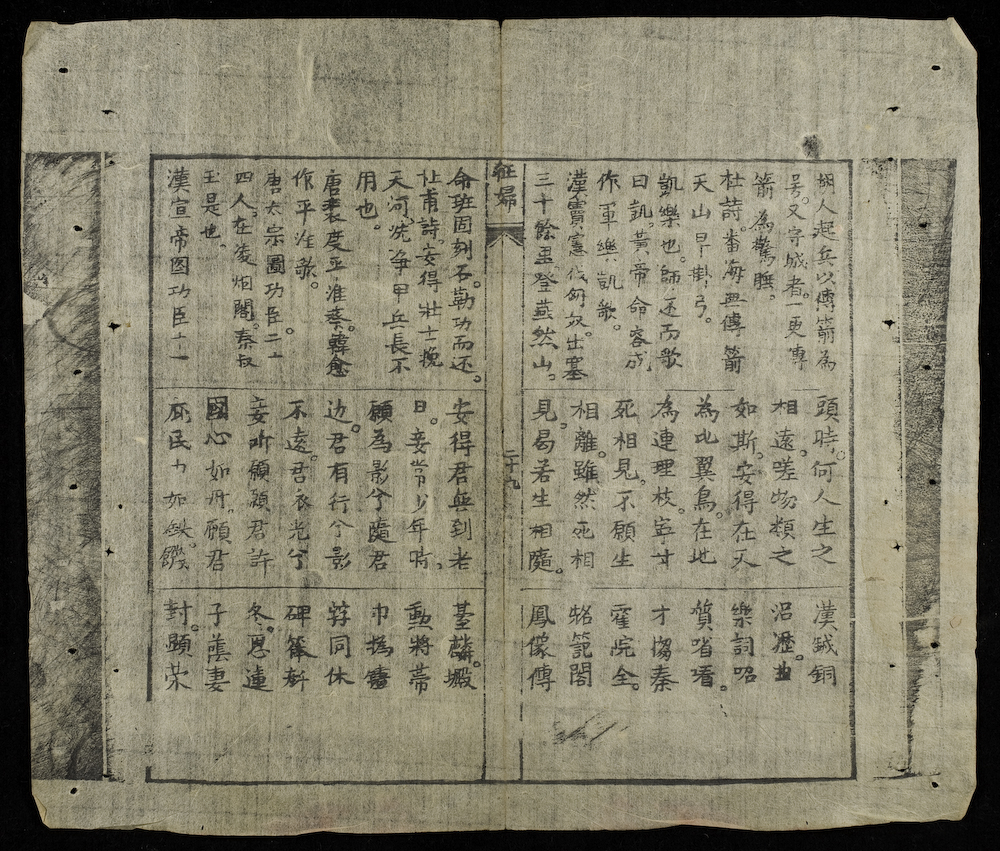 胡人起兵以傳箭為
号。又守城者。一更傳
箭為驚睡。
杜詩。番海無傳箭
天山早掛弓。
凱樂也。師还而歌
曰凱。黄帝命容成
作軍樂凱歌。
漢竇憲伐匈奴出塞
三十餘里登燕然山。
頭時。何人生之
相遠。嗟物類之
如斯。安得在天
為比翼鳥。在地
為連理枝。寧甘
死相見。不願生
相離。雖然死相
見。曷若生相隨。
漢鉞銅
沼瀝。曲
樂詞
質咍看。
才秦
霍院全。
範閣
鳳傳
征婦
二十九
命班固刻石。勒功而还。
杜甫詩。安得壯士挽
天河。洗争甲兵長不
用也。
唐裴度平淮蔡。韓愈
作平淮歌。
唐太宗圖功臣。二十
四人。在凌烟閣。秦叔
玉是也。
漢宣帝图功臣十一
安得君無到老
日。妾常少年時。
願為影兮隨君
边。君有行兮影
不遠。君衣光兮
妾所願。願君許
國心如丹。願君
庇民力如鉄。饑
臺麟。
勳將
巾撝
同休
碑
冬。恩
子蔭妻
封。顕荣